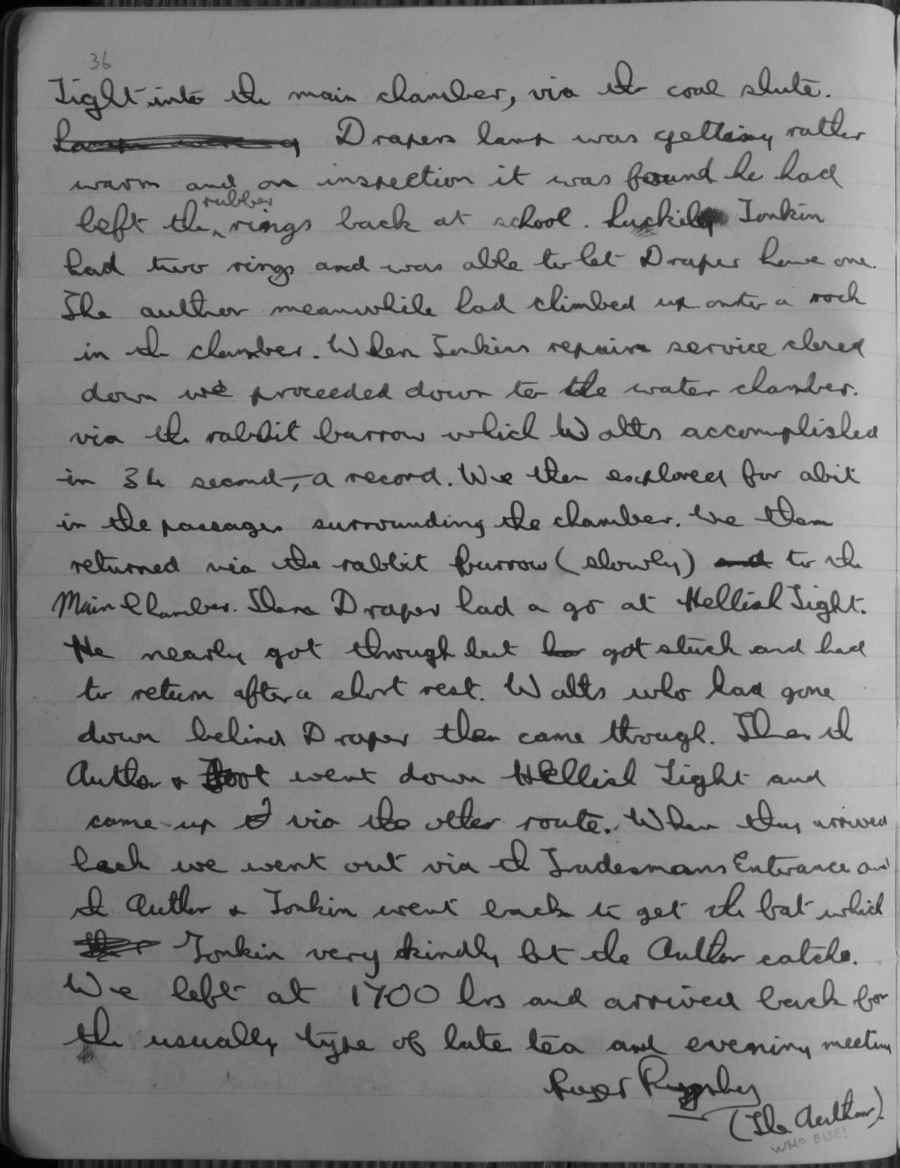 36
Tight into the main chamber, via the coal shute.
Drapers lamp was getting rather
warm and on inspection it was found he had
rubber
left the rings back at school. Luckily Tonkin
had two rings and was able to let Draper have one.
The author meanwhile had climbed up onto a rock
in the chamber. When Tonkins repairs service closed
down we proceeded down to the water chamber.
via the rabbit burrow which Watts accomplished
in 34 second, a record. We then explored for abit
in the passages surrounding the chamber. We then
returned via the rabbit burrow (slowly) and to the
Main Chamber. There Draper had a go at Hellish Tight.
He nearly got through but got stuck and had
to return after a short rest. Watts who had gone
down behind Draper then came through. Then the
Author & Foot went down Hellish Tight and
came up via the other route. When they arrived
back we went out via the Tradesmans Entrance and
the Author & Tonkin went back to get the bat which
Tonkin very kindly let the Author catch.
We left at 1700 hrs and arrived back for
the usually type of late tea and evening meeting
Roger
(The Author).
WHO ELSE!